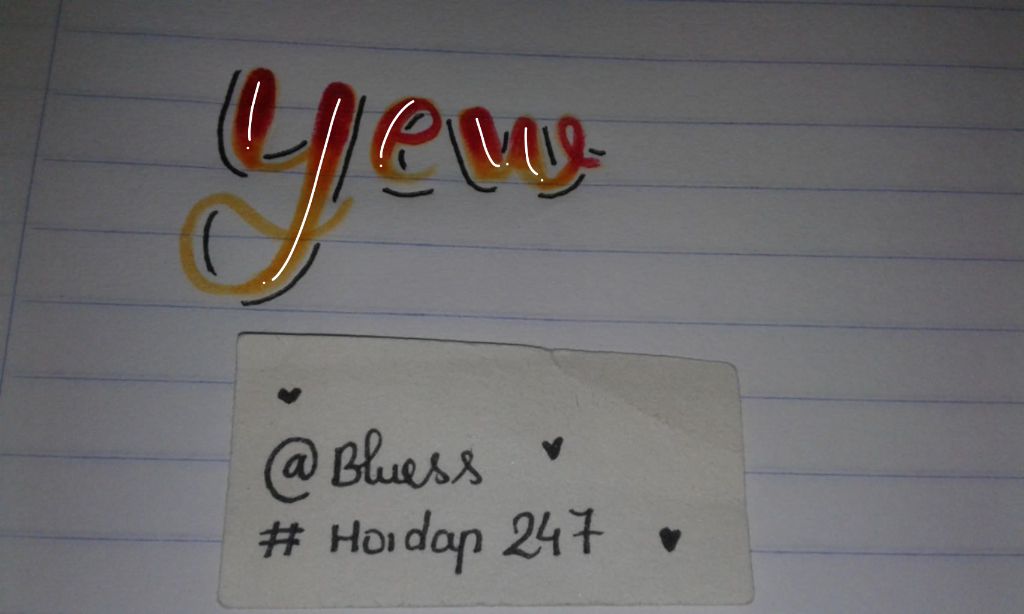 yew
@Bluess
# Hoidap 247